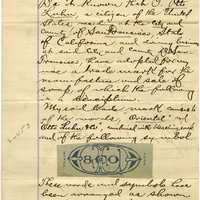 Be it Known that I, Otto
Luhn, a citizen of the United
States, residing at the city and
county of San Francisco, State
of California and doing business
at said city and county of San
Francisco, have adopted for my
use a trade mark for the
manufacture and sale of
soap of which the following
is a description.
My said trade mark consists
of the words, "Oriental" and
Otto Luhn & Co, combined with
and of the following symbol
& CO
These words and symbols have
been arranged as shown